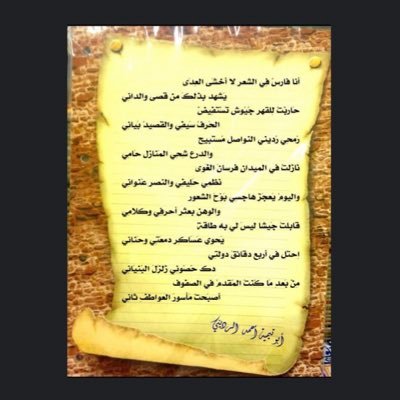 أنا فارسٌ في الشعر لا أخشى العدى
يشهد بذلك من قصى والداني
حاربَت للقهر جَيُوش تستَفيضَ
الحرف سَيفي والقصيدَ بَياني
رَمحي رَديني التواصل مَستبيح
والدرع شحي المنازل حَامي
نازلت في الميدان فرسان الغوى
نظمي حليفي والنصر عَنواني
واليومَ يعجزَ هاجسي بوْح الشعور
والوهن بعثر أحرفي وكلامي
قابلت جيشا ليسَ لي به طاقة
يحوي عَساكر دمعتي وحناني
إحتل في أربع دقائق دولتي
دك حصوني زلزل البَنياني
منْ بَعد ما كنت المقدمَ في الصفوف
أصبحت مأسور العواطف ثاني
أبو تيمية أحمد الرديني